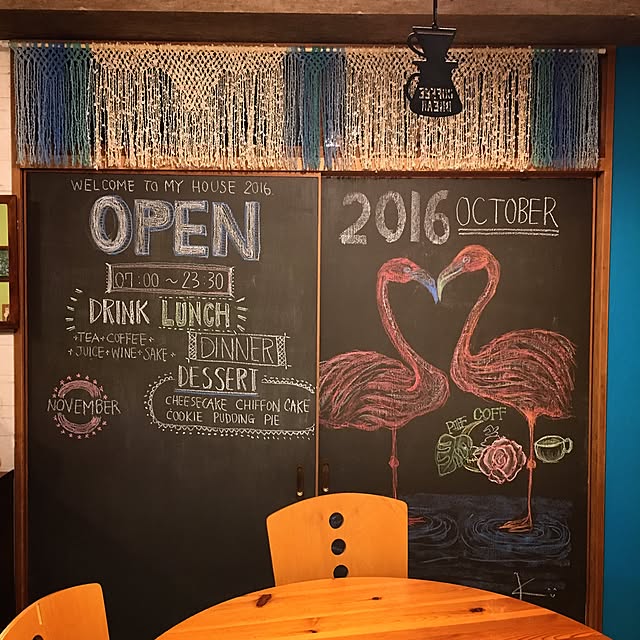 WELCOME TO MY HOUSE 2016.
OPEN
07:00 ~ 23:30
DRINK LUNCH
TEA+COFFEE+
+JUICE+WINE+SAKE+
DINNER
DESSERT
CHEESECAKE CHIFFON CAKE
COOKIE PUDDING PIE
NOVEMBER
2016 OCTOBER
COFFEE
BREAK